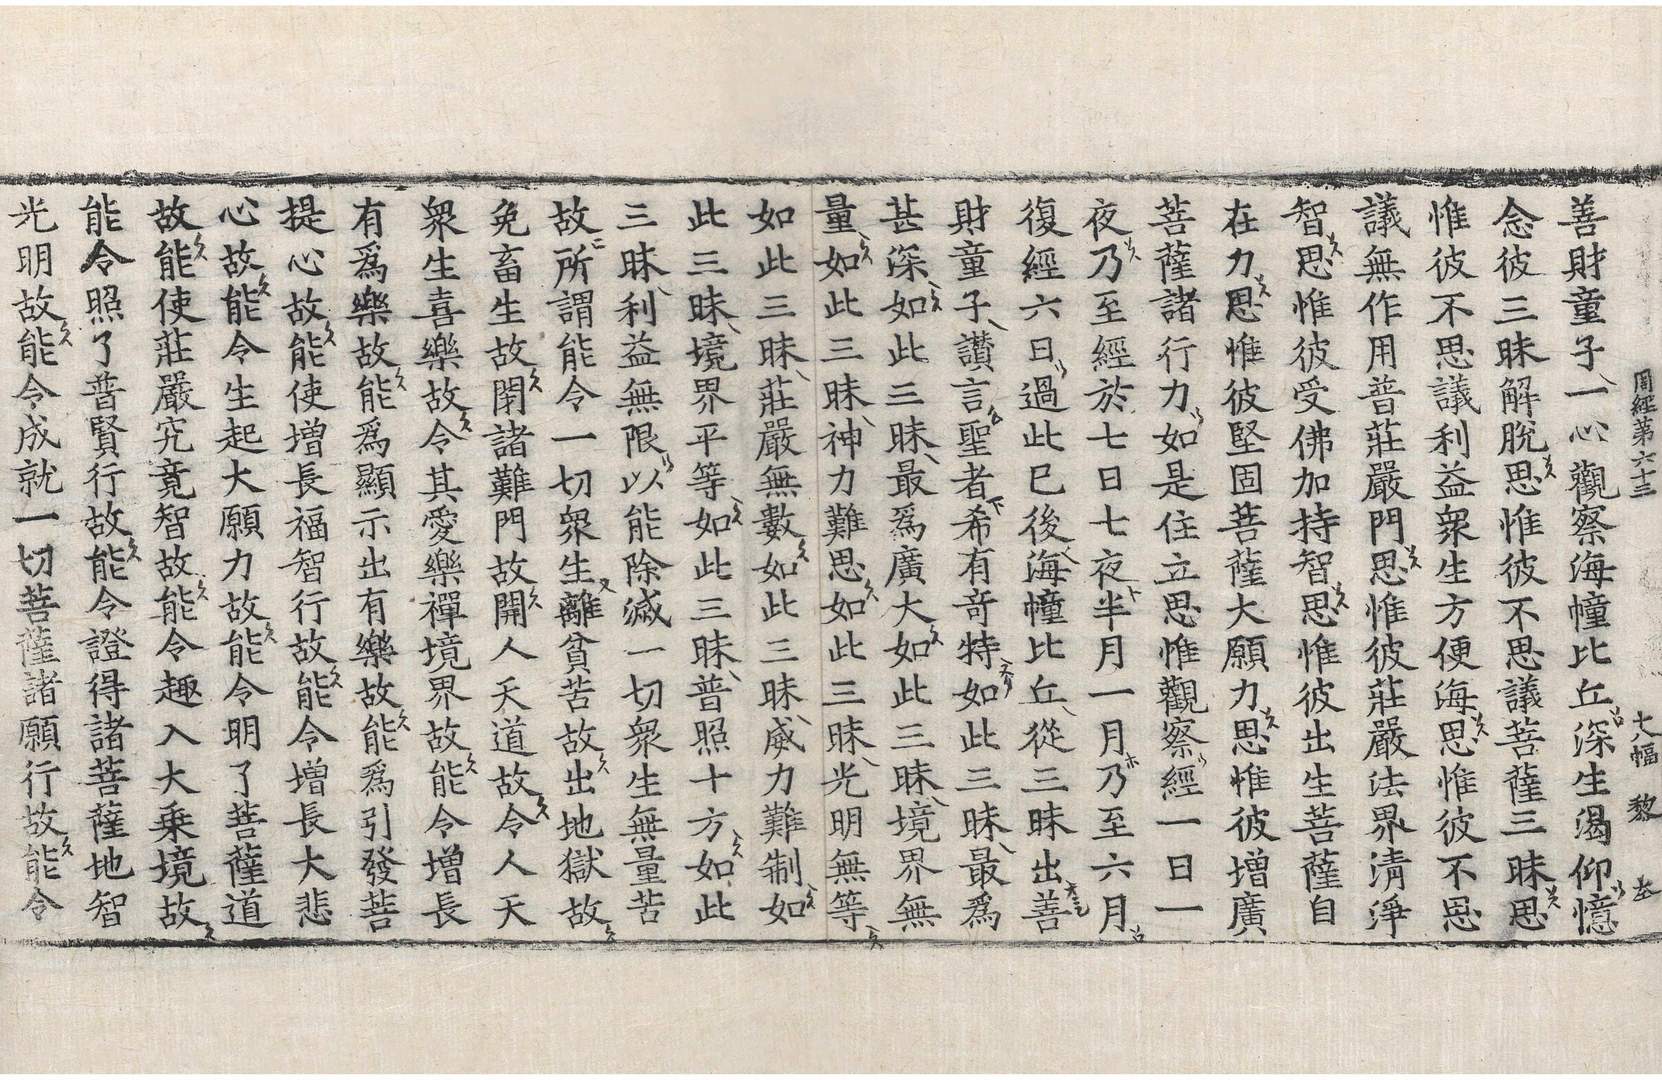 周經第六十三　十八幅　黎
善財童子一心觀察海幢比丘深生渴仰憶
念彼三昧解脫思惟彼不思議菩薩三昧思
惟彼不思議利益衆生方便海思惟彼不思
議無作用普莊嚴門思惟彼莊嚴法界淸淨
智思惟彼受佛加持智思惟彼出生菩薩自
在力思惟彼堅固菩薩大願力思惟彼增廣
菩薩諸行力如是住立思惟觀察經一日一
夜乃至經於七日七夜半月一月乃至六月
復經六日過此已後海幢比丘從三昧出善
財童子讚言聖者希有奇特如此三昧最爲
甚深如此三昧最爲廣大如此三昧境界無
量如此三昧神力難思如此三昧光明無等
如此三昧莊嚴無數如此三昧威力難制如
此三昧境界平等如此三昧普照十方如此
三昧利益無限以能除滅一切衆生無量苦
故所謂能令一切衆生離貧苦故出地獄故
免畜生故閇諸難門故開人天道故令人天
衆生喜樂故令其愛樂禪境界故能令增長
有爲樂故能爲顯示出有樂故能爲引發菩
提心故能使增長福智行故能令增長大悲
心故能令生起大願力故能令明了菩薩道
故能使莊嚴究竟智故能令趣入大乗境故
能令照了普賢行故能令證得諸菩薩地智
光明故能令成就一切菩薩諸願行故能令